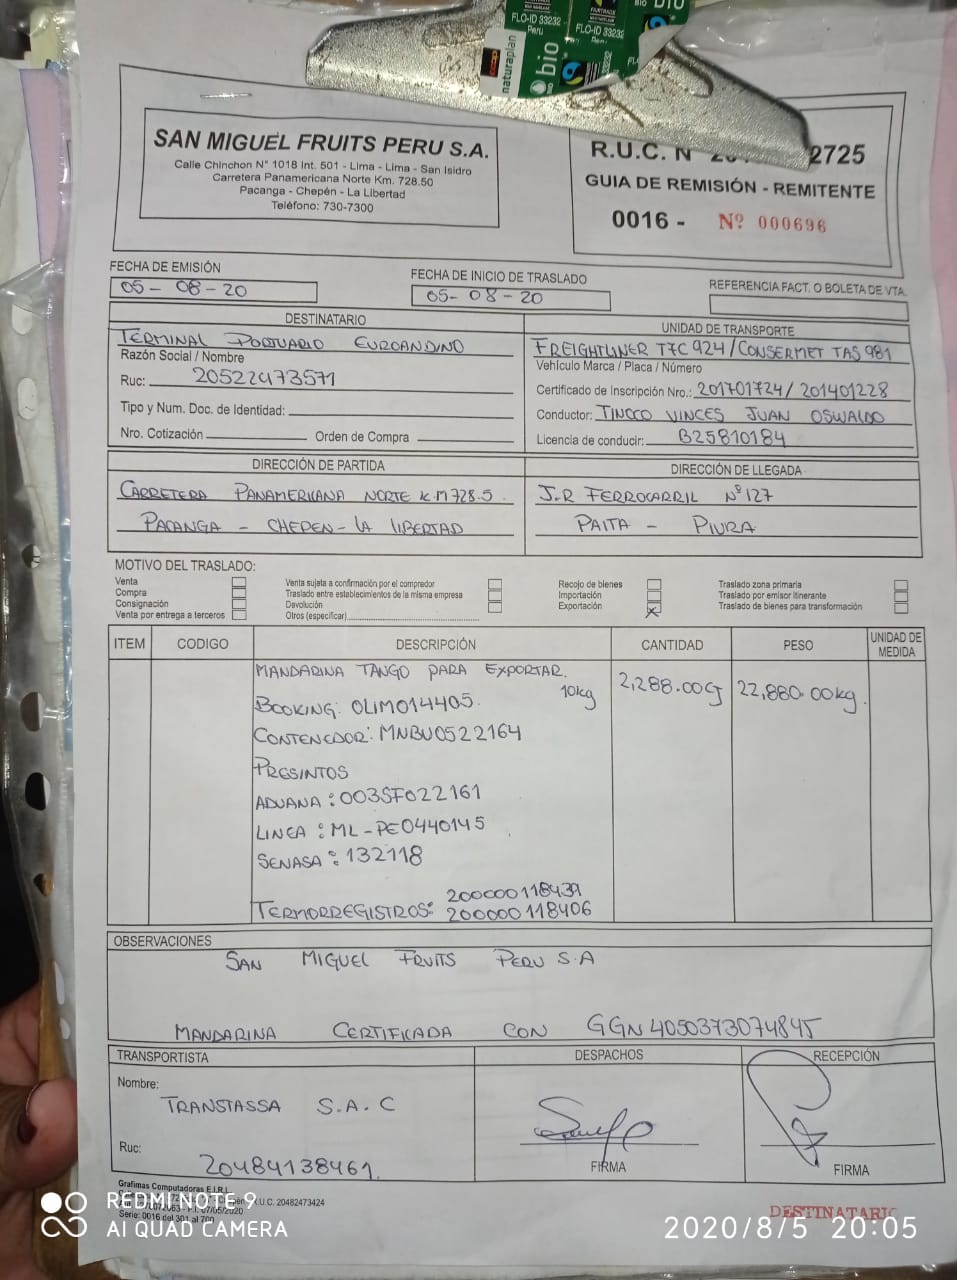 FLO-ID 33232
Peru
FLO-ID 33232
Peru
naturaplan
bio
SAN MIGUEL FRUITS PERU S.A.
Calle Chinchon N° 1018 Int. 501 - Lima - Lima - San Isidro
Carretera Panamericana Norte Km. 728.50
Pacanga - Chepén - La Libertad
Teléfono: 730-7300
R.U.C. N 2725
GUIA DE REMISIÓN - REMITENTE
0016 - Nº 000696
FECHA DE EMISIÓN
05-08-20
FECHA DE INICIO DE TRASLADO
05-08-20
REFERENCIA FACT. O BOLETA DE VTA.
DESTINATARIO
TERMINAL PORTUARIO EUROANDINO
Razón Social / Nombre
Ruc: 20522473571
Tipo y Num. Doc. de Identidad:
Nro. Cotización Orden de Compra
UNIDAD DE TRANSPORTE
FREIGHTLINER T7C 924 / CONSERMET TAS 981
Vehículo Marca / Placa / Número
Certificado de Inscripción Nro.: 201701724 / 201401228
Conductor: TINOCO VINCES JUAN OSWALDO
Licencia de conducir: B25810184
DIRECCIÓN DE PARTIDA
CARRETERA PANAMERICANA NORTE K.M 728.5
PACANGA - CHEPEN - LA LIBERTAD
DIRECCIÓN DE LLEGADA
J.R FERROCARRIL Nº 127
PAITA - PIURA
MOTIVO DEL TRASLADO:
Venta
Compra
Consignación
Venta por entrega a terceros
Venta sujeta a confirmación por el comprador
Traslado entre establecimientos de la misma empresa
Devolución
Otros (especificar)
Recojo de bienes
Importación
Exportación X
Traslado zona primaria
Traslado por emisor itinerante
Traslado de bienes para transformación
ITEM CODIGO DESCRIPCIÓN CANTIDAD PESO UNIDAD DE MEDIDA
MANDARINA TANGO PARA EXPORTAR.
10kg 2,288.00 22,880.00kg.
BOOKING: OLIM014405.
CONTENEDOR: MNBU0522164
PRESINTOS
ADUANA: 003SF022161
LINEA: ML-PE0440145
SENASA: 132118
TERMORREGISTROS: 200000118439
200000118406
OBSERVACIONES
SAN MIGUEL FRUITS PERU S.A
MANDARINA CERTIFICADA CON GGN 4050373074845
TRANSPORTISTA
Nombre:
TRANSTASSA S.A.C
Ruc:
20484138461
DESPACHOS
FIRMA
RECEPCIÓN
FIRMA
Grafimas Computadoras E.I.R.L
R.U.C. 20482473424
Serie: 0016 del 301 al 700
DESTINATARIO
REDMI NOTE 9
AI QUAD CAMERA
2020/8/5 20:05